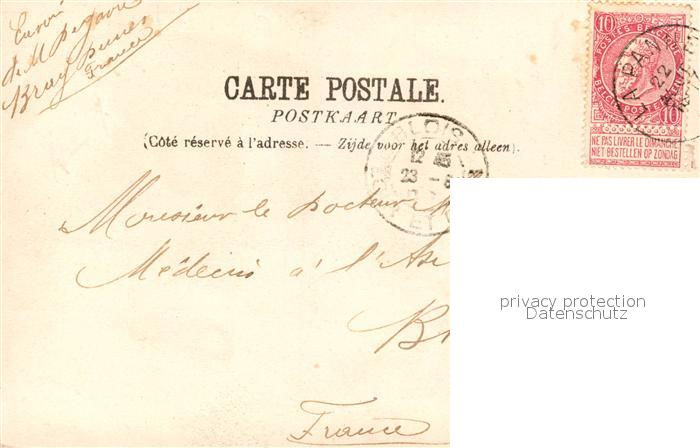 Envoi
de M
Bray Dunes
France
10
POSTES BELGIQUE
10
NE PAS LIVRER LE DIMANCHE
NIET BESTELLEN OP ZONDAG
LA PAN
22
CARTE POSTALE.
POSTKAART
(Côté réservé à l'adresse. — Zijde voor het adres alleen).
BLOIS
12
23 - 8
Monsieur le Docteur M
Médecin à l'As
B
France
privacy protection
Datenschutz